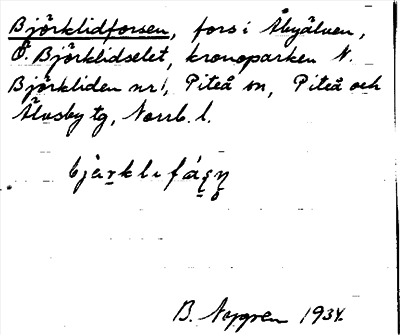 Björklidforsen, fors i Åbyälven,
Ö. Björklidselet, kronoparken N.
Björkliden nr 1, Piteå sn, Piteå och
Älvsby tg, Norrb. l.
bjärklifåʂn̥
B. Norgren 1934.